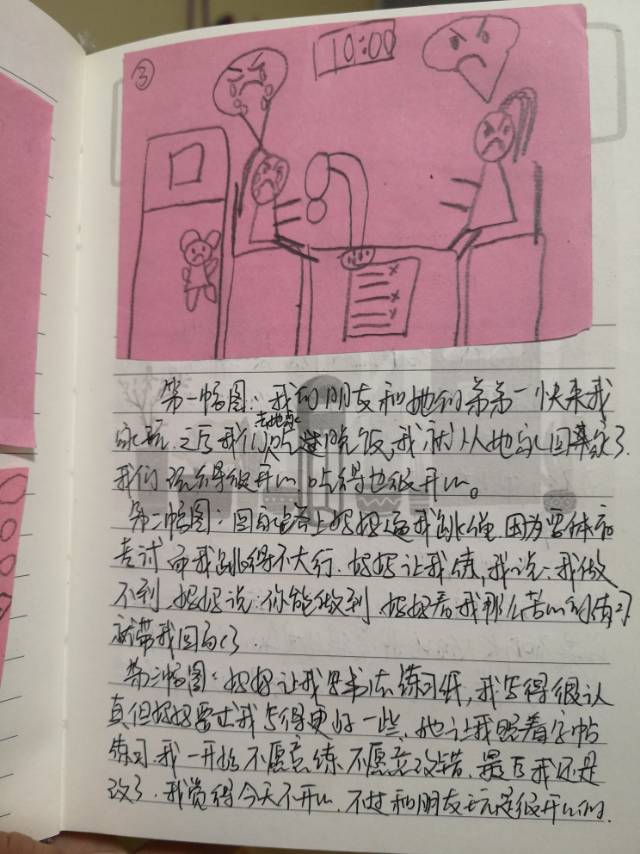 ③
10:00
第一幅图：我的朋友和她的弟弟一快来我
家玩，之后我们去她家吃晚饭，我就从她家回来了.
我们玩得很开心，吃得也很开心。
第二幅图：回家路上妈妈逼我跳绳，因为要体育
考试而我跳得不大行.妈妈让我练，我说：我做
不到，妈妈说：你能做到，妈妈看我那么苦心的练习
就带我回家了.
第三幅图：妈妈让我写书法练习纸，我写得很认
真但妈妈要让我写得更好一些，她让我照着字帖
练习.我一开始不愿意练，不愿意改错，最后我还是
改了.我觉得今天不开心，不过和朋友玩是很开心的.